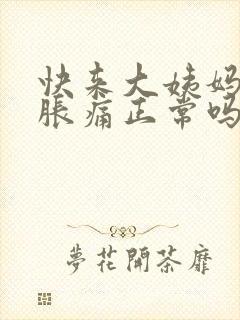 快来大姨妈
胀痛正常吗
夢花開荼靡